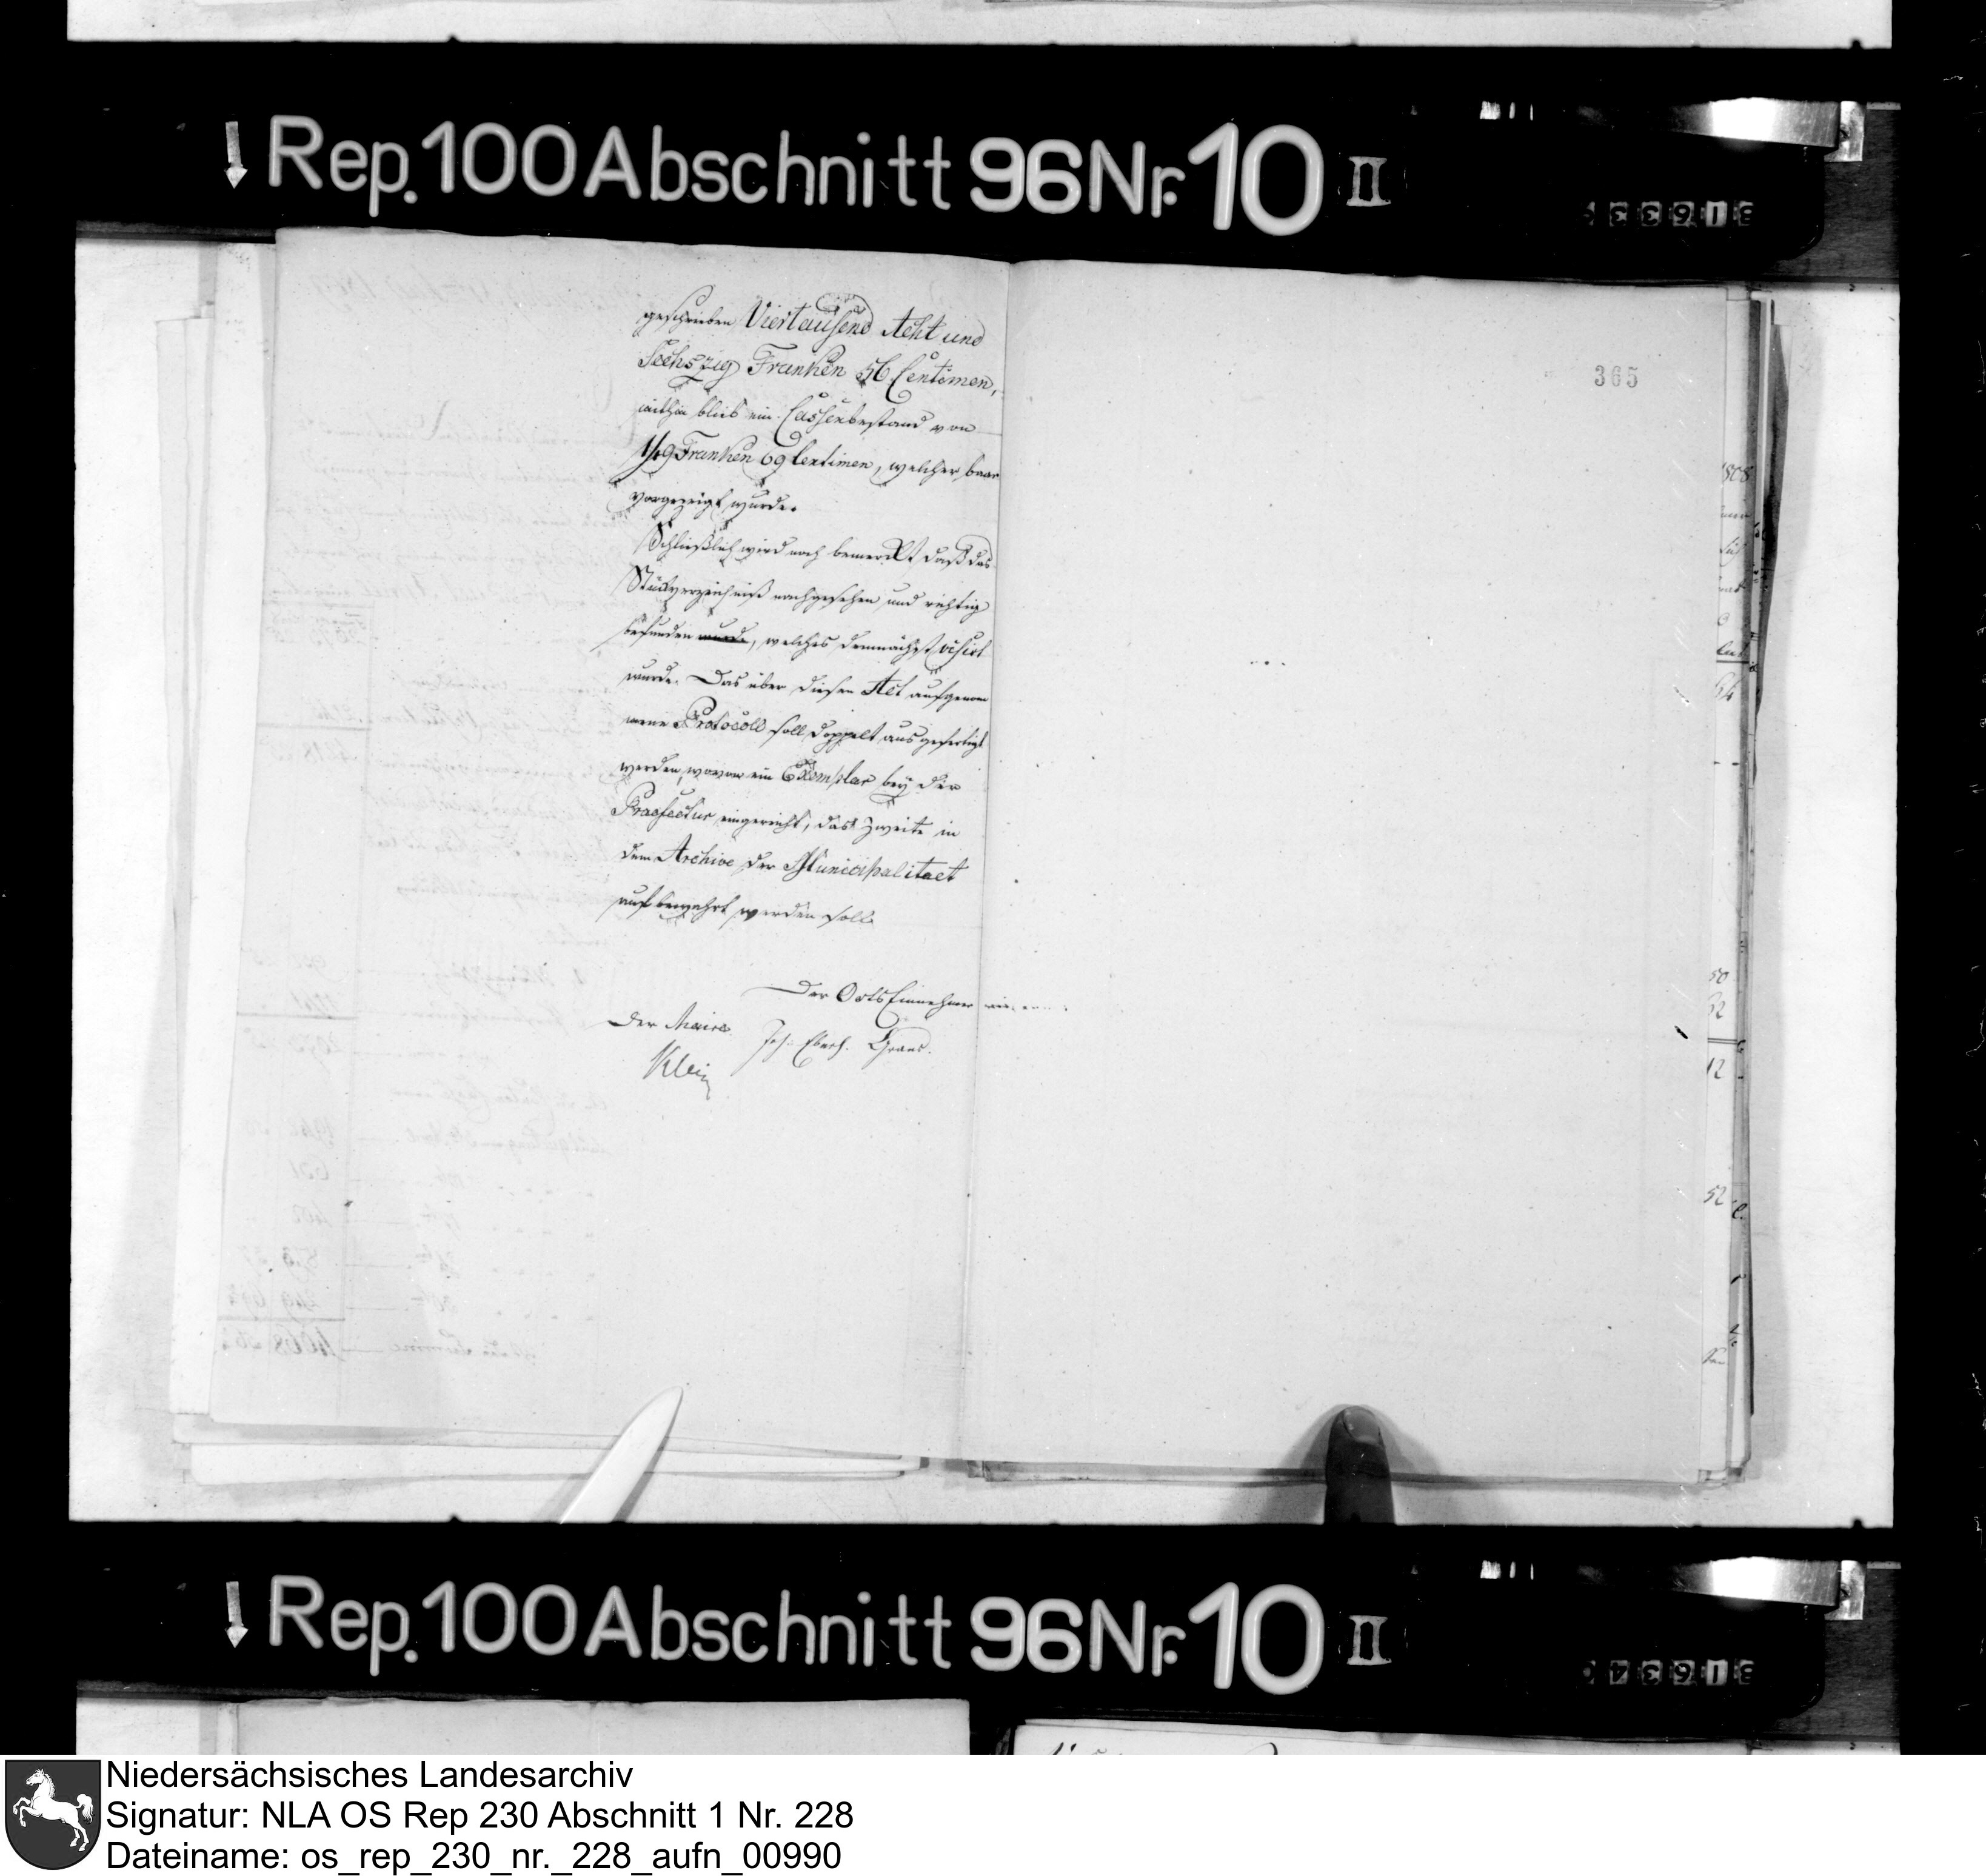 Rep. 100 Abschnitt 96 Nr. 10 II
geschrieben Viertausend Acht und
Sechszig Franken 56 Centimen,
mithin blieb ein Cassenbestand von
Franken 69 Centimen, welcher baar
vorgezeigt wurde.
Schließlich wird noch bemerckt daß das
Stückverzeichniß nachgesehen und richtig
befunden wurde, welches demnächst visirt
wurde. Das über diesen Act aufgenom
mene Protocoll soll doppelt ausgefertigt
werden, wovon ein Exemplar bey der
Praefectur eingereicht, das zweite in
dem Archive der Municipalitaet
aufbewahrt werden soll.
Der Orts Einnehmer
Der Maire Joh. Eberh.
Klein
365
1808
64
50
62
12
52
Rep. 100 Abschnitt 96 Nr. 10 II
Niedersächsisches Landesarchiv
Signatur: NLA OS Rep 230 Abschnitt 1 Nr. 228
Dateiname: os_rep_230_nr._228_aufn_00990